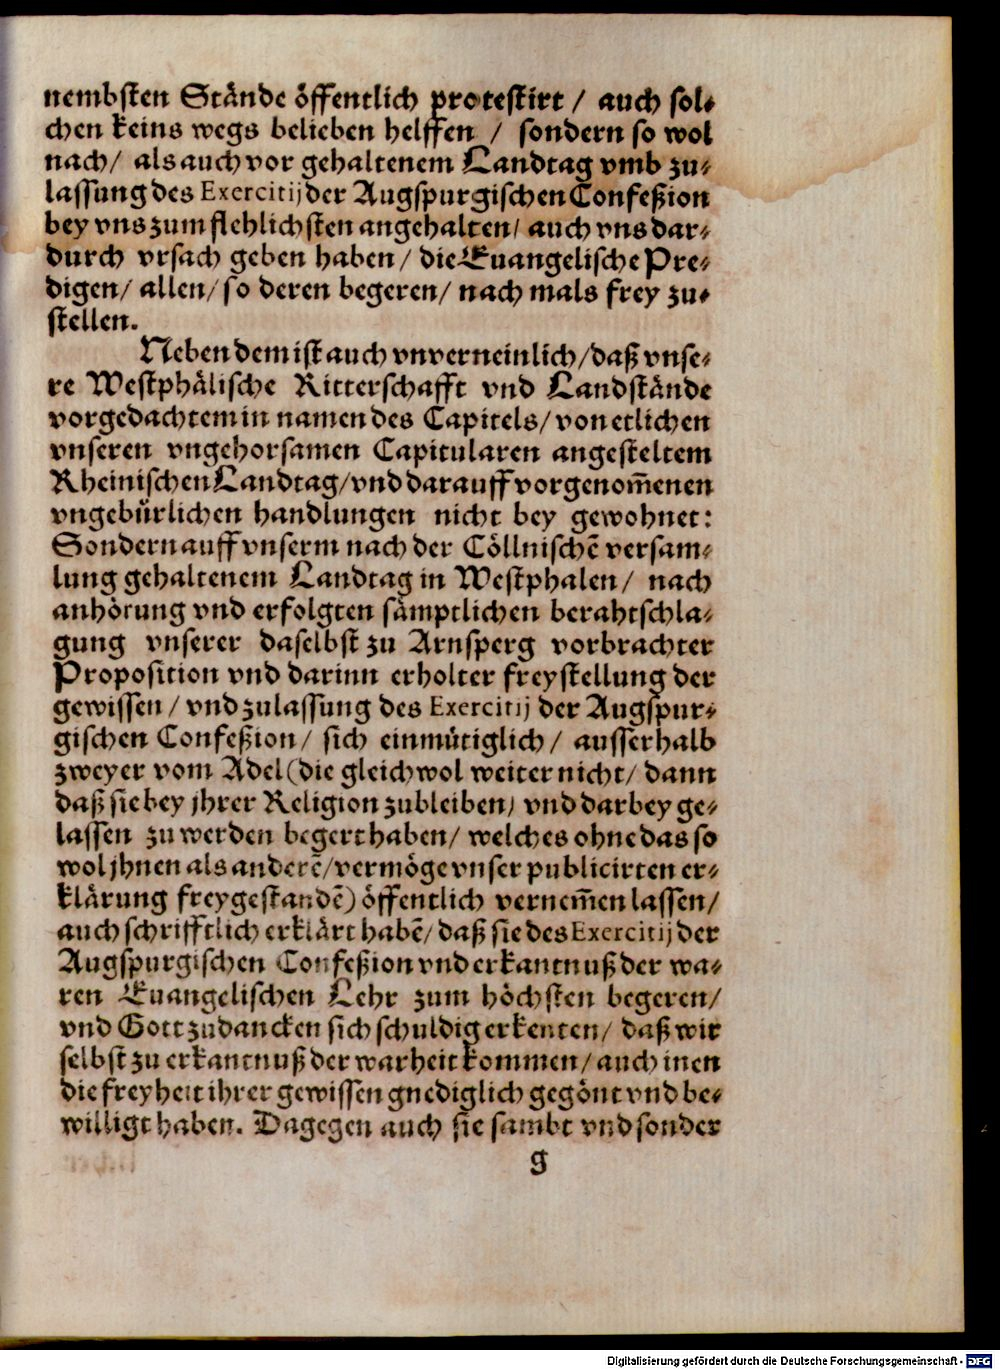 nembsten Stände öffentlich protestirt / auch sol⸗
chen keins wegs belieben helffen / sondern so wol
nach / als auch vor gehaltenem Landtag vmb zu⸗
lassung des Exercitij der Augspurgischen Confeßion
bey vns zum flehlichsten angehalten / auch vns dar⸗
durch vrsach geben haben / die Euangelische Pre⸗
digen / allen / so deren begeren / nach mals frey zu⸗
stellen.
Neben dem ist auch vnverneinlich / daß vnse⸗
re Westphälische Ritterschafft vnd Landstände
vorgedachtem in namen des Capitels / von etlichen
vnseren vngehorsamen Capitularen angesteltem
Rheinischen Landtag / vnd darauff vorgenom̃enen
vngebürlichen handlungen nicht bey gewohnet:
Sondern auff vnserm nach der Cöllnischẽ versam⸗
lung gehaltenem Landtag in Westphalen / nach
anhörung vnd erfolgten sämptlichen berahtschla⸗
gung vnserer daselbst zu Arnsperg vorbrachter
Proposition vnd darinn erholter freystellung der
gewissen / vnd zulassung des Exercitij der Augspur⸗
gischen Confeßion / sich einmütiglich / ausserhalb
zweyer vom Adel (die gleichwol weiter nicht / dann
daß sie bey jhrer Religion zubleiben / vnd darbey ge⸗
lassen zu werden begert haben / welches ohne das so
wol jhnen als anderẽ / vermöge vnser publicirten er⸗
klärung frey gestandẽ) öffentlich vernem̃en lassen /
auch schrifftlich erklärt habẽ / daß sie des Exercitij der
Augspurgischen Confeßion vnd erkantnuß der wa⸗
ren Euangelischen Lehr zum höchsten begeren /
vnd Gott zu dancken sich schuldig erkenten / daß wir
selbst zu erkantnuß der warheit kommen / auch inen
die freyheit ihrer gewissen gnediglich gegönt vnd be⸗
willigt haben. Dagegen auch sie sambt vnd sonder
g
Digitalisierung gefördert durch die Deutsche Forschungsgemeinschaft - DFG